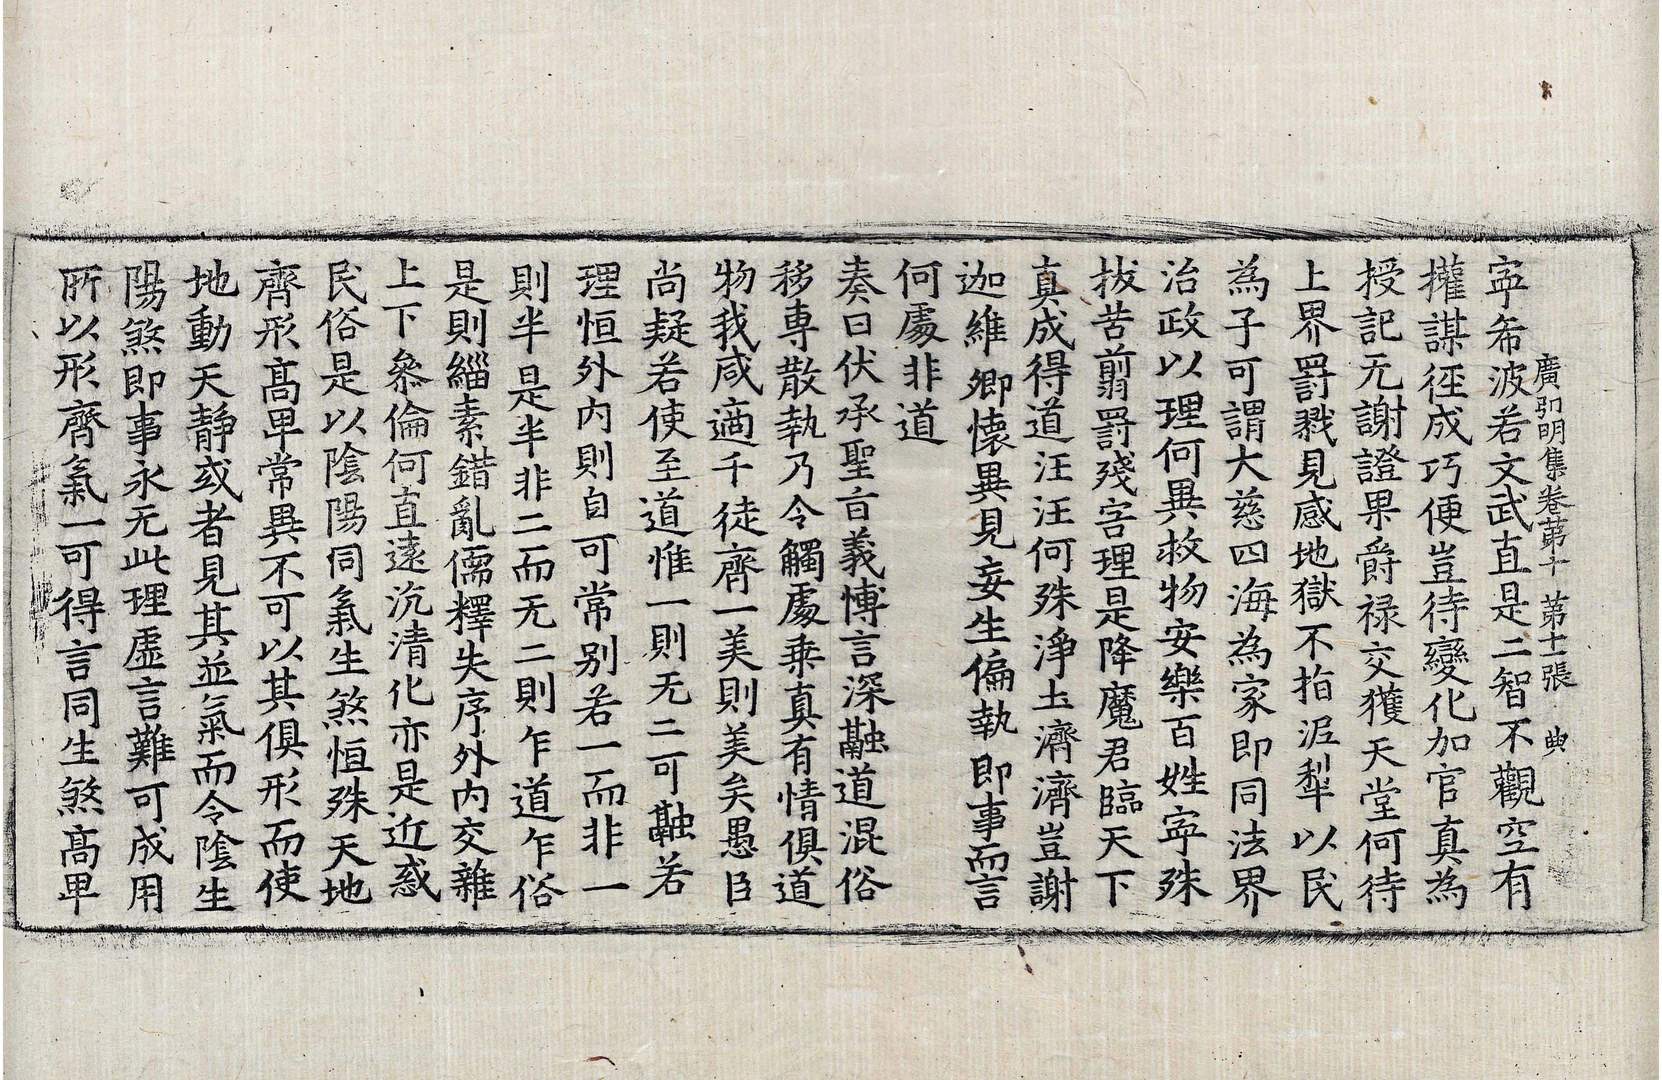 廣弘明集卷第十 第十一張 典
寕希波若文武直是二智不觀空有
權謀徑成巧便豈待變化加官真為
授記无謝證果爵禄交獲天堂何待
上界罸戮見感地獄不指泥犁以民
為子可謂大慈四海為家即同法界
治政以理何異救物安樂百姓寕殊
拔苦翦罸殘害理是降魔君臨天下
真成得道汪汪何殊淨土濟濟豈謝
迦維卿懷異見妄生偏執即事而言
何處非道
奏曰伏承聖旨義博言深融道混俗
移專散執乃令觸處乗真有情俱道
物我咸適千徒齊一美則美矣愚臣
尚疑若使至道惟一則无二可融若
理恒外内則自可常別若一而非一
則半是半非二而无二則乍道乍俗
是則緇素錯亂儒釋失序外内交雜
上下叅倫何直遠沉清化亦是近惑
民俗是以陰陽同氣生煞恒殊天地
齊形髙卑常異不可以其俱形而使
地動天靜或者見其並氣而令陰生
陽煞即事永无此理虛言難可成用
所以形齊氣一可得言同生煞髙卑